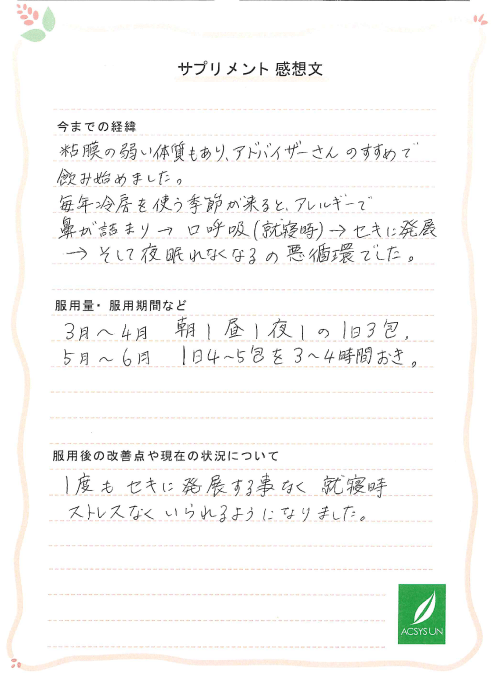 サプリメント 感想文
今までの経緯
粘膜の弱い体質もあり、アドバイザーさんのすすめで
飲み始めました。
毎年冷房を使う季節が来ると、アレルギーで
鼻が詰まり→口呼吸(就寝時)→セキに発展
→そして夜眠れなくなるの悪循環でした。
服用量・服用期間など
3月～4月 朝1昼1夜1の1日3包、
5月～6月 1日4～5包を3～4時間おき。
服用後の改善点や現在の状況について
1度もセキに発展する事なく 就寝時
ストレスなくいられるようになりました。
ACSYSUN